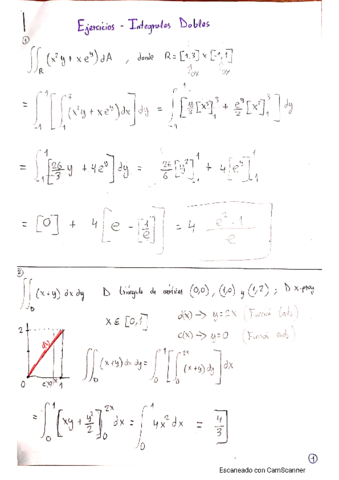 Ejercicios - Integrales Dobles
1)
∬_R (x²y + x e^y) dA , donde R = [1,3] x [-1,1]
= ∫_{-1}^{1} [∫_1^3 (x²y + x e^y) dx] dy = ∫_{-1}^{1} [y/3 [x³]_1^3 + e^y/2 [x²]_1^3] dy
= ∫_{-1}^{1} [26/3 y + 4e^y] dy = 26/6 [y²]_{-1}^{1} + 4 [e^y]_{-1}^{1}
= [0] + 4 [e - [1/e]] = 4 (e² - 1)/e
2)
∬_D (x+y) dx dy D triángulo de vértices (0,0), (1,0) y (1,2) ; D x-proy
x ∈ [0,1] d(x) → y = 2x
c(x) → y = 0
2
d(x)
0 c(x) 1
∬_D (x+y) dx dy = ∫_0^1 [∫_0^{2x} (x+y) dy] dx
= ∫_0^1 [xy + y²/2]_0^{2x} dx = ∫_0^1 4x² dx = 4/3
1
Escaneado con CamScanner